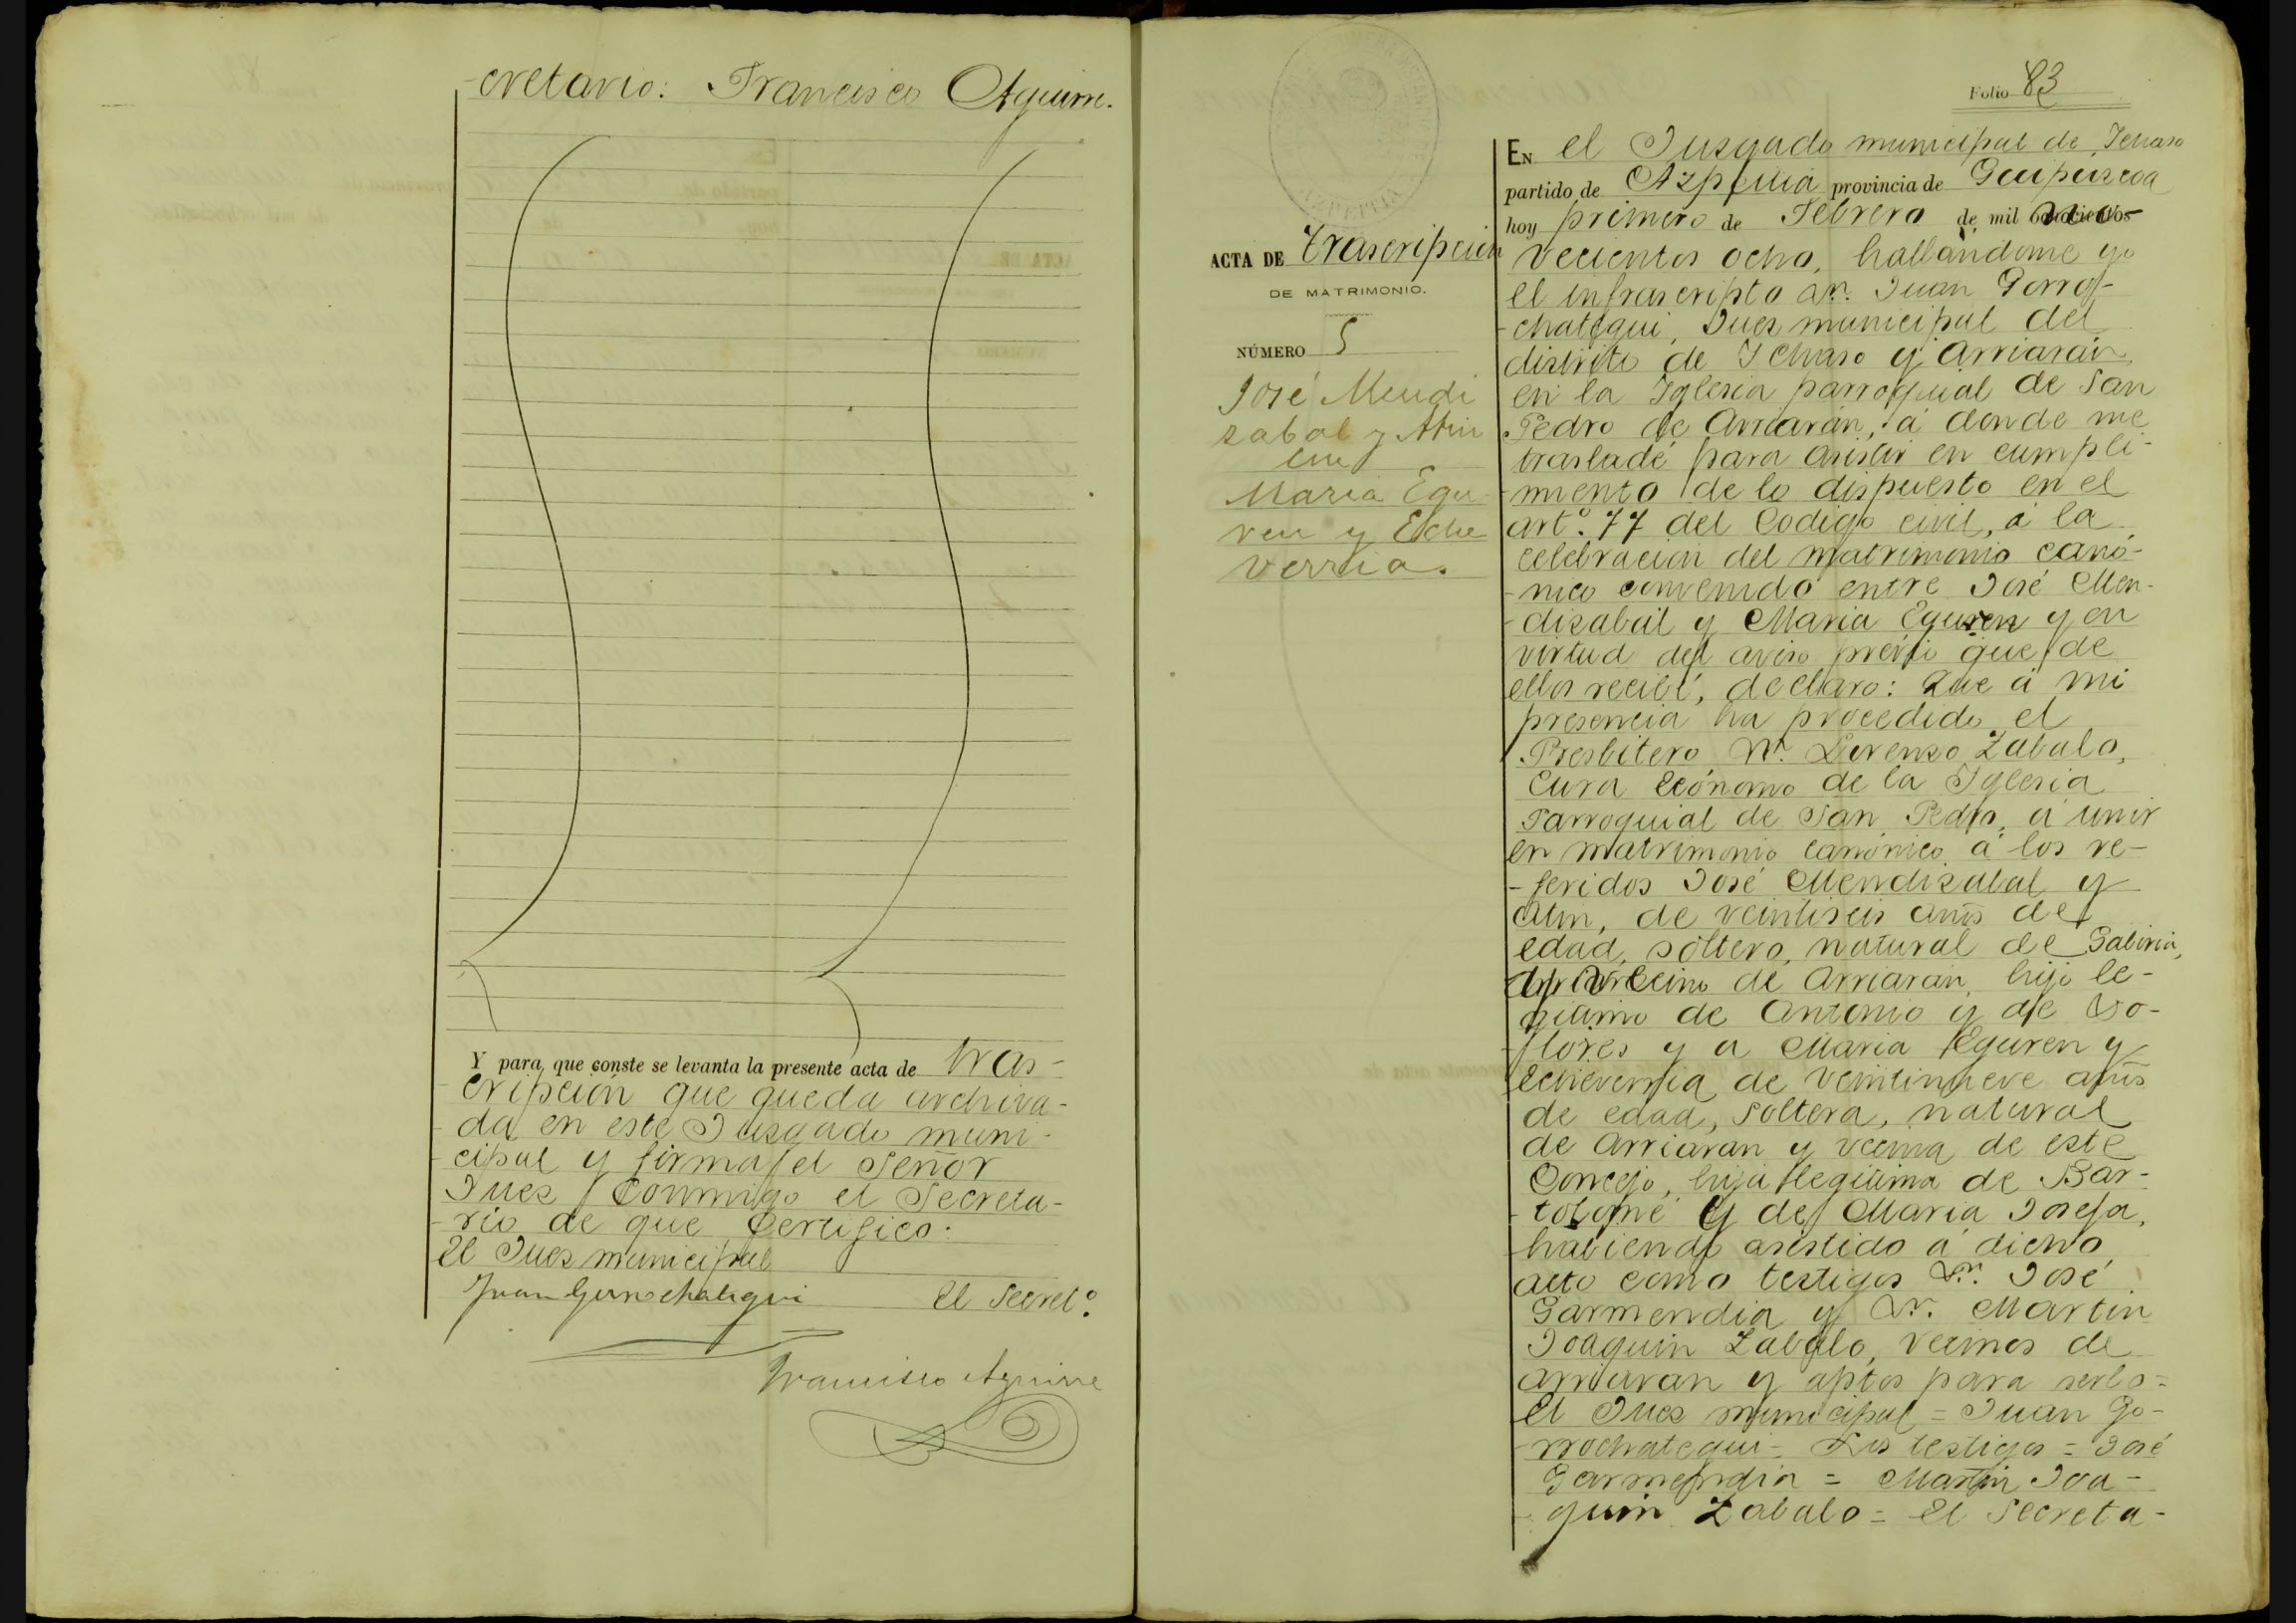 -cretario: Francisco Aguirre.
Y para que conste se levanta la presente acta de tras-
cripción que queda archiva-
da en este Juzgado muni-
cipal y firma el Señor
Juez conmigo el Secreta-
rio de que certifico:
El Juez municipal
Juan Gorrochategui El Secretº.
Francisco Aguirre
Folio 83
ACTA DE trascripción
DE MATRIMONIO.
NÚMERO 5
José Mendi
zabal y
Maria Egu
ren y Eche
verria.
En el Juzgado municipal de Ichaso
partido de Azpeitia provincia de Guipuzcoa
hoy primero de Febrero de mil no-
vecientos ocho, hallandome yo
el infrascripto Dn. Juan Gorro-
-chategui, Juez municipal del
distrito de Ichaso y Arriarán,
en la Iglesia parroquial de San
Pedro de Arriarán, á donde me
trasladé para asistir en cumpli-
-miento de lo dispuesto en el
artº. 77 del Codigo civil, á la
celebracion del matrimonio canó-
-nico convenido entre José Men-
-dizabal y Maria Eguren y en
virtud del aviso previo que de
ellos recibí, declaro: Que á mi
presencia ha procedido el
Presbitero Dn. Lorenzo Zabalo,
Cura Ecónomo de la Iglesia
Parroquial de San Pedro, á unir
en matrimonio canónico á los re-
-feridos José Mendizabal y
de veintiseis años de
edad, soltero, natural de Gabiria,
vecino de Arriaran, hijo le-
gitimo de Antonio y de Do-
-lores y a Maria Eguren y
Echeverria de veintinueve años
de edad, soltera, natural
de Arriaran y vecina de este
Concejo, hija legitima de Bar-
-tolomé y de Maria Josefa,
habiendo asistido á dicho
acto como testigos Dn. José
Garmendia y Dn. Martin
Joaquin Zabalo, vecinos de
Arriaran y aptos para serlo=
El Juez municipal = Juan Go-
rrochategui = Los testigos = José
Garmendia = Martin Joa-
quin Zabalo = El Secreta-